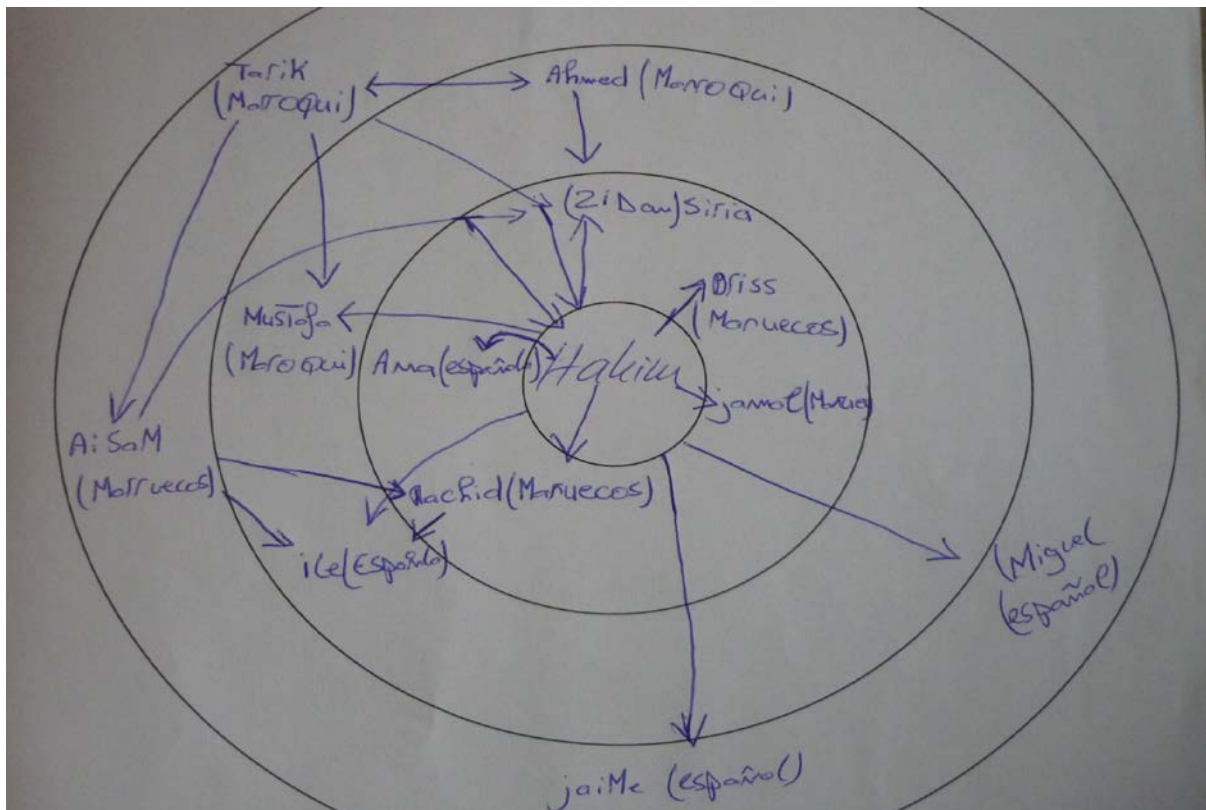 Tarik
(Marroqui)
Ahmed (Marroqui)
(ZiDan) Siria
Driss
(Marruecos)
Mustafa
(Maroqui)
Ana (española)
Hakim
jamal
AiSaM
(Marruecos)
Rachid (Marruecos)
ile (España)
(Miguel
(español)
jaiMe (español)